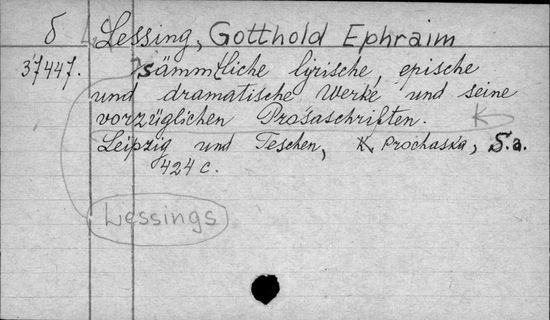 б Lessing, Gotthold Ephraim
37447. Sämmtliche lyrische, epische
und dramatische Werke und seine
vorzüglichen Prosaschriften.
Leipzig und Teschen, K. Prochaska, S.a.
424 c.
Lessings